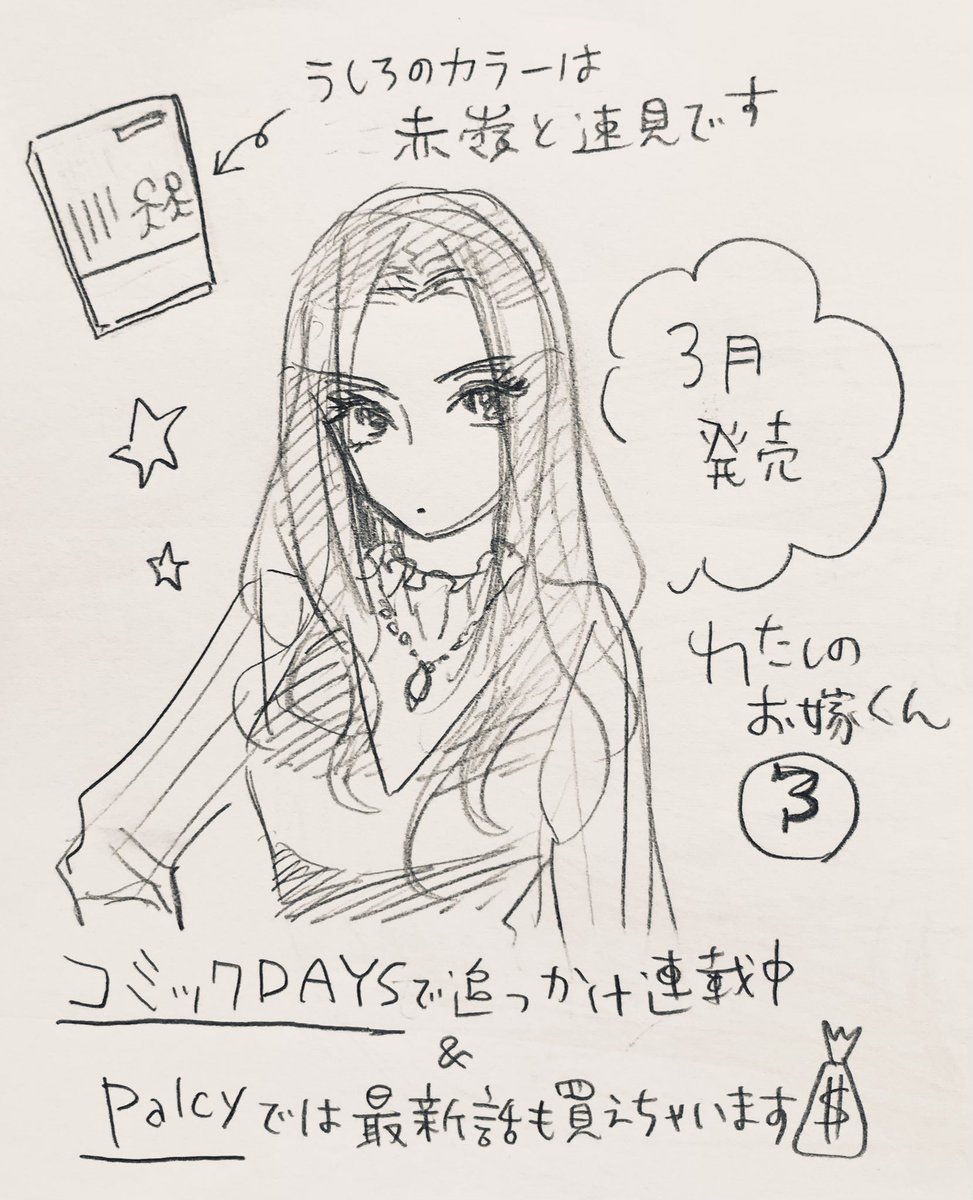 うしろのカラーは
赤嶺と速見です
3月
発売
わたしの
お嫁くん
3
コミックDAYSで追っかけ連載中
&
Palcyでは最新話も買えちゃいます
$